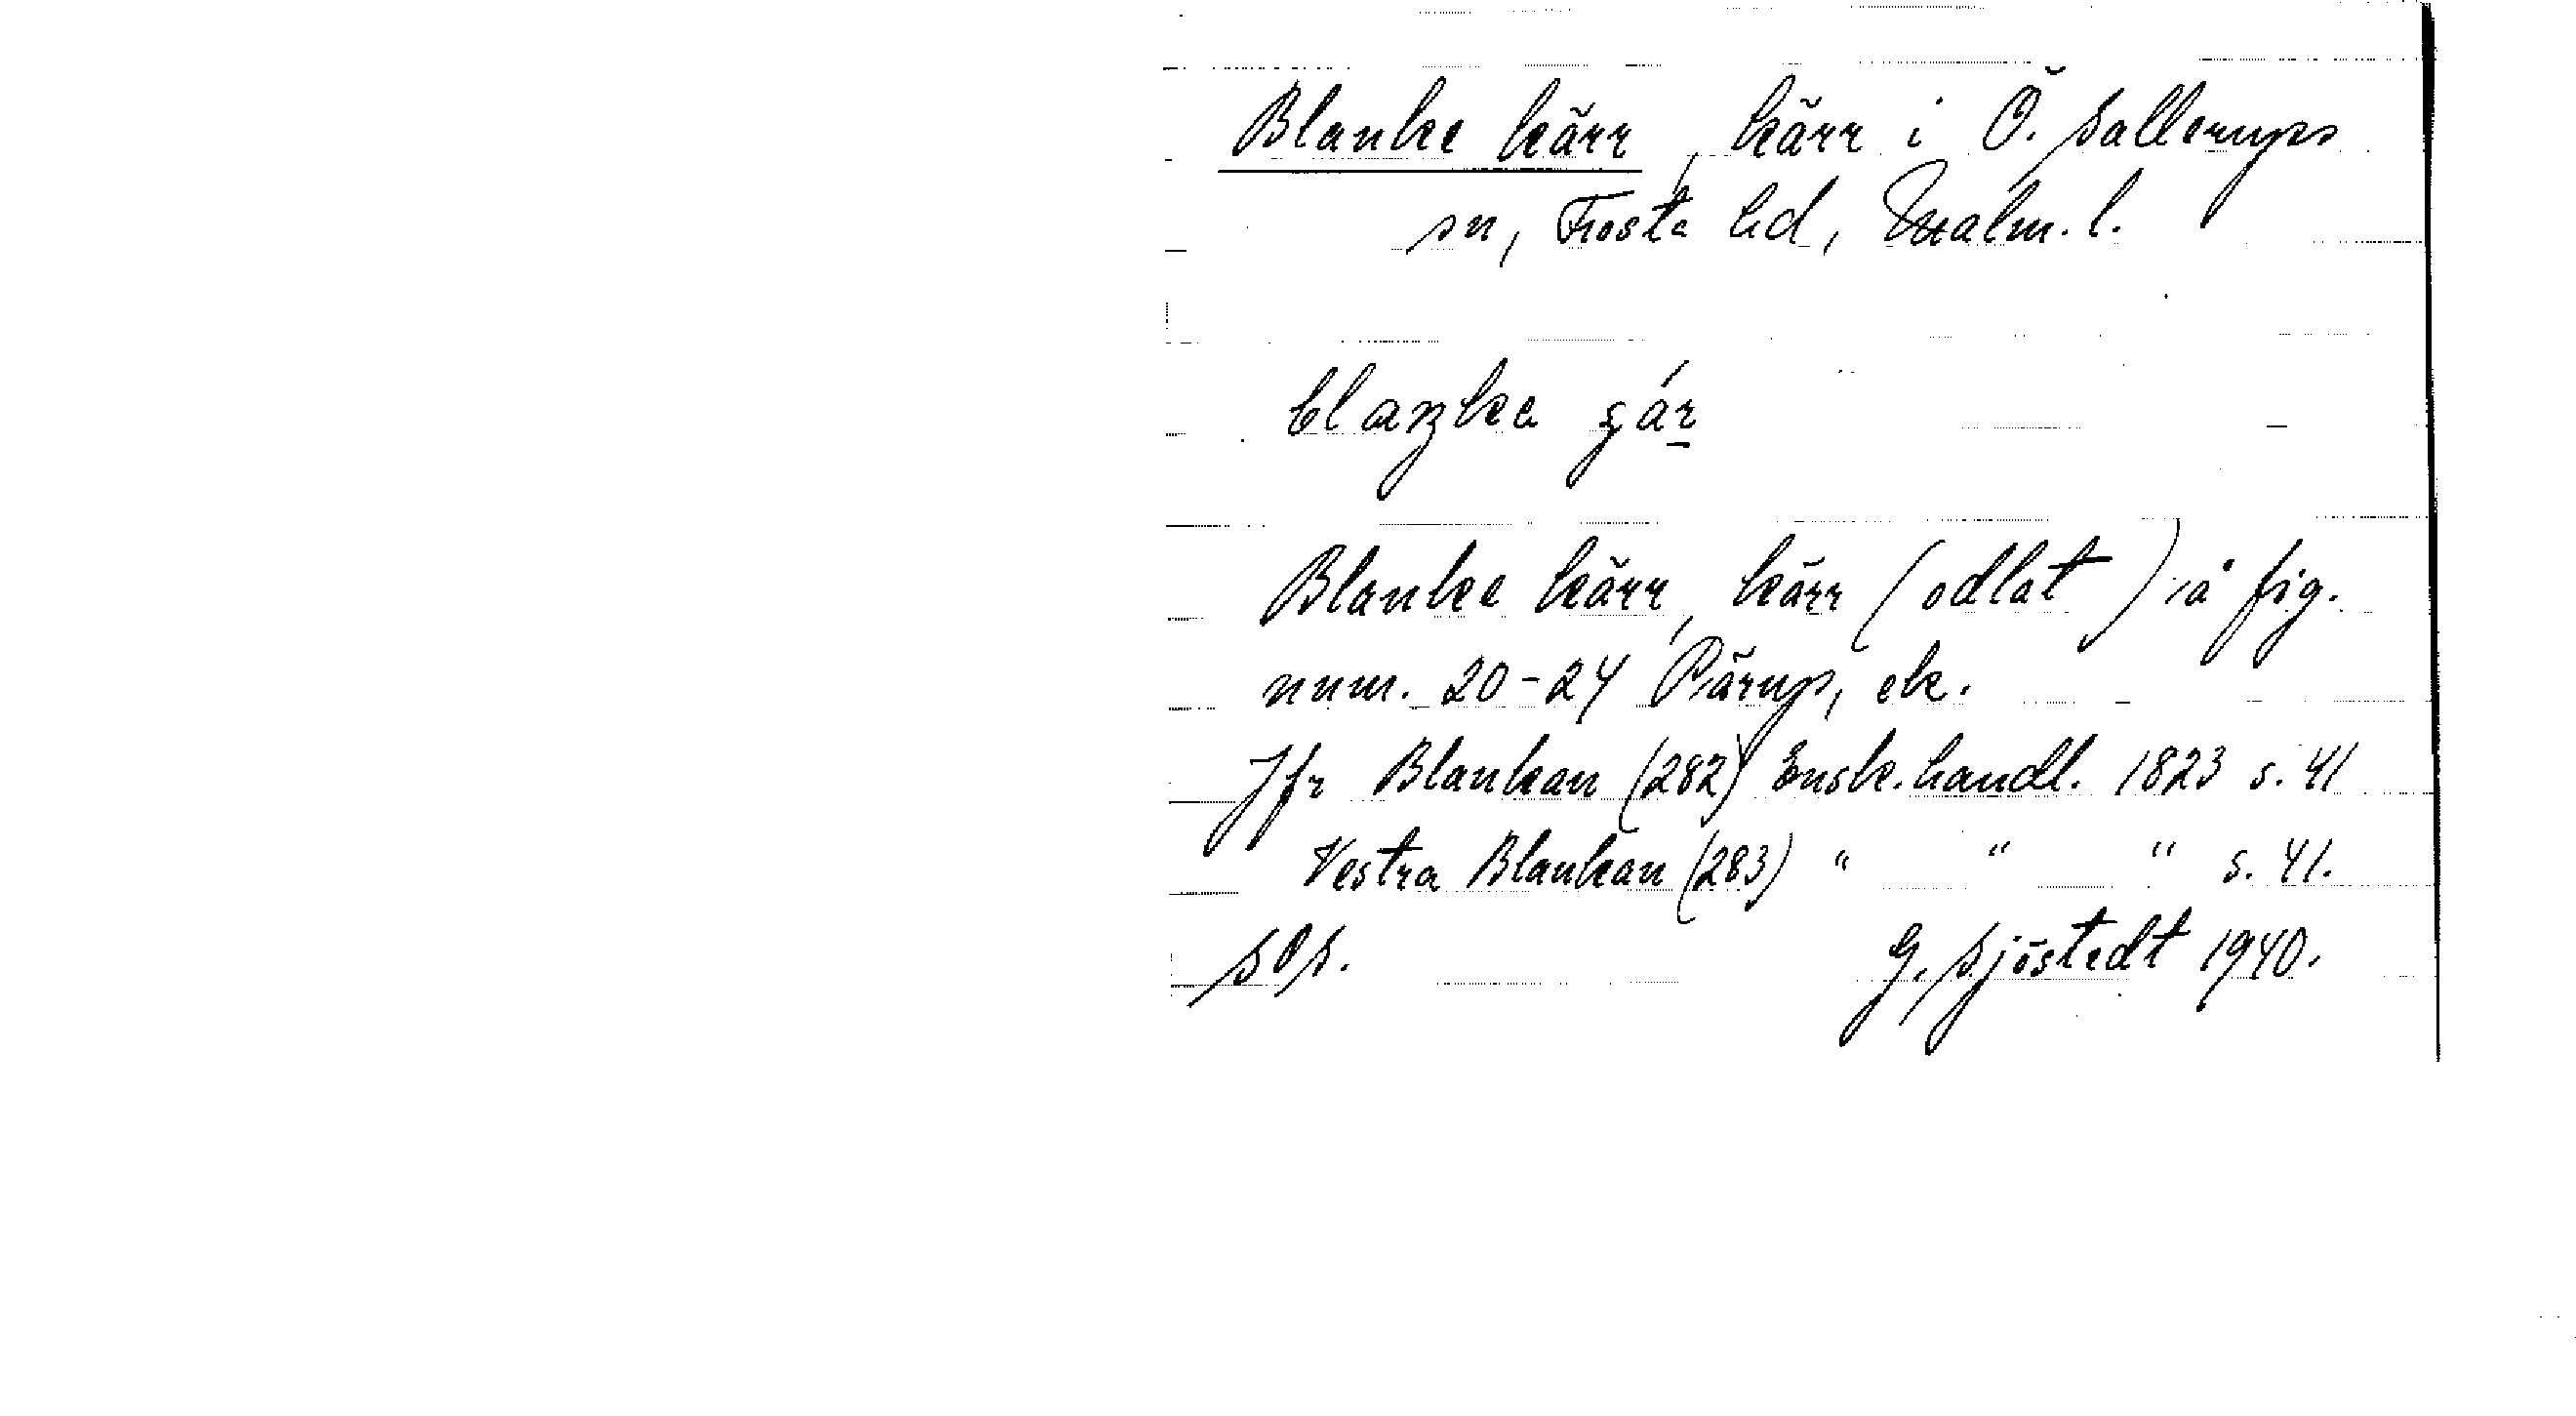 Blanke kärr, kärr i Ö. Sallerups
sn, Frosta hd, Malm. l.
Blanke kärr, kärr (odlat) å fig.
num. 20-24 Pärup, ek.
Jfr Blankan (282) Ensk. handl. 1823 s. 41
Vestra Blankan (283) " " " s. 41.
SOS. G. Sjöstedt 1940.